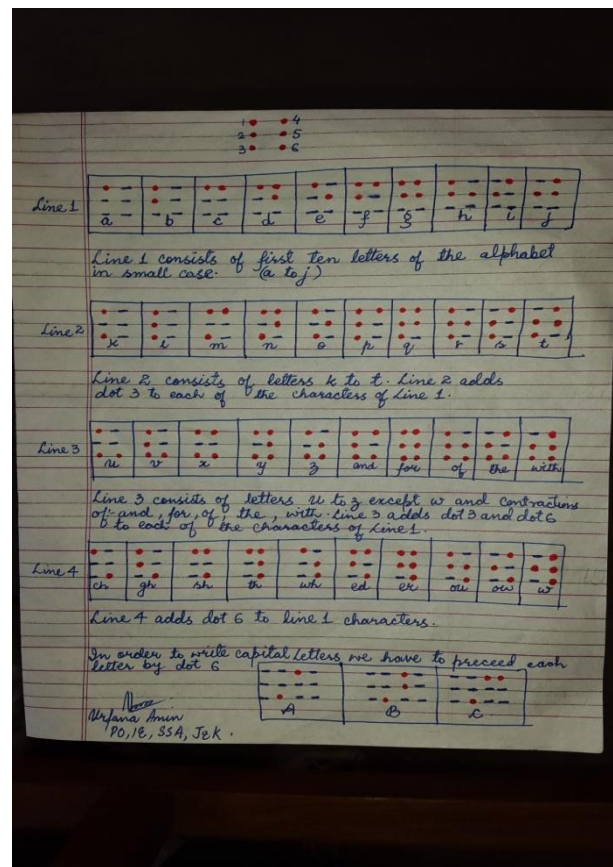 1 4
2 5
3 6
Line 1
a b c d e f g h i j
Line 1 consists of first ten letters of the alphabet
in small case. (a to j)
Line 2
k l m n o p q r s t
Line 2 consists of letters k to t. Line 2 adds
dot 3 to each of the characters of Line 1.
Line 3
u v x y z and for of the with
Line 3 consists of letters u to z except w and contractions
of:- and, for, of, the, with. Line 3 adds dot 3 and dot 6
to each of the characters of Line 1.
Line 4
ch gh sh th wh ed er ou ow w
Line 4 adds dot 6 to line 1 characters.
In order to write capital letters we have to preceed each
letter by dot 6
A B C
Urfana Amin
PO, IE, SSA, J&K.